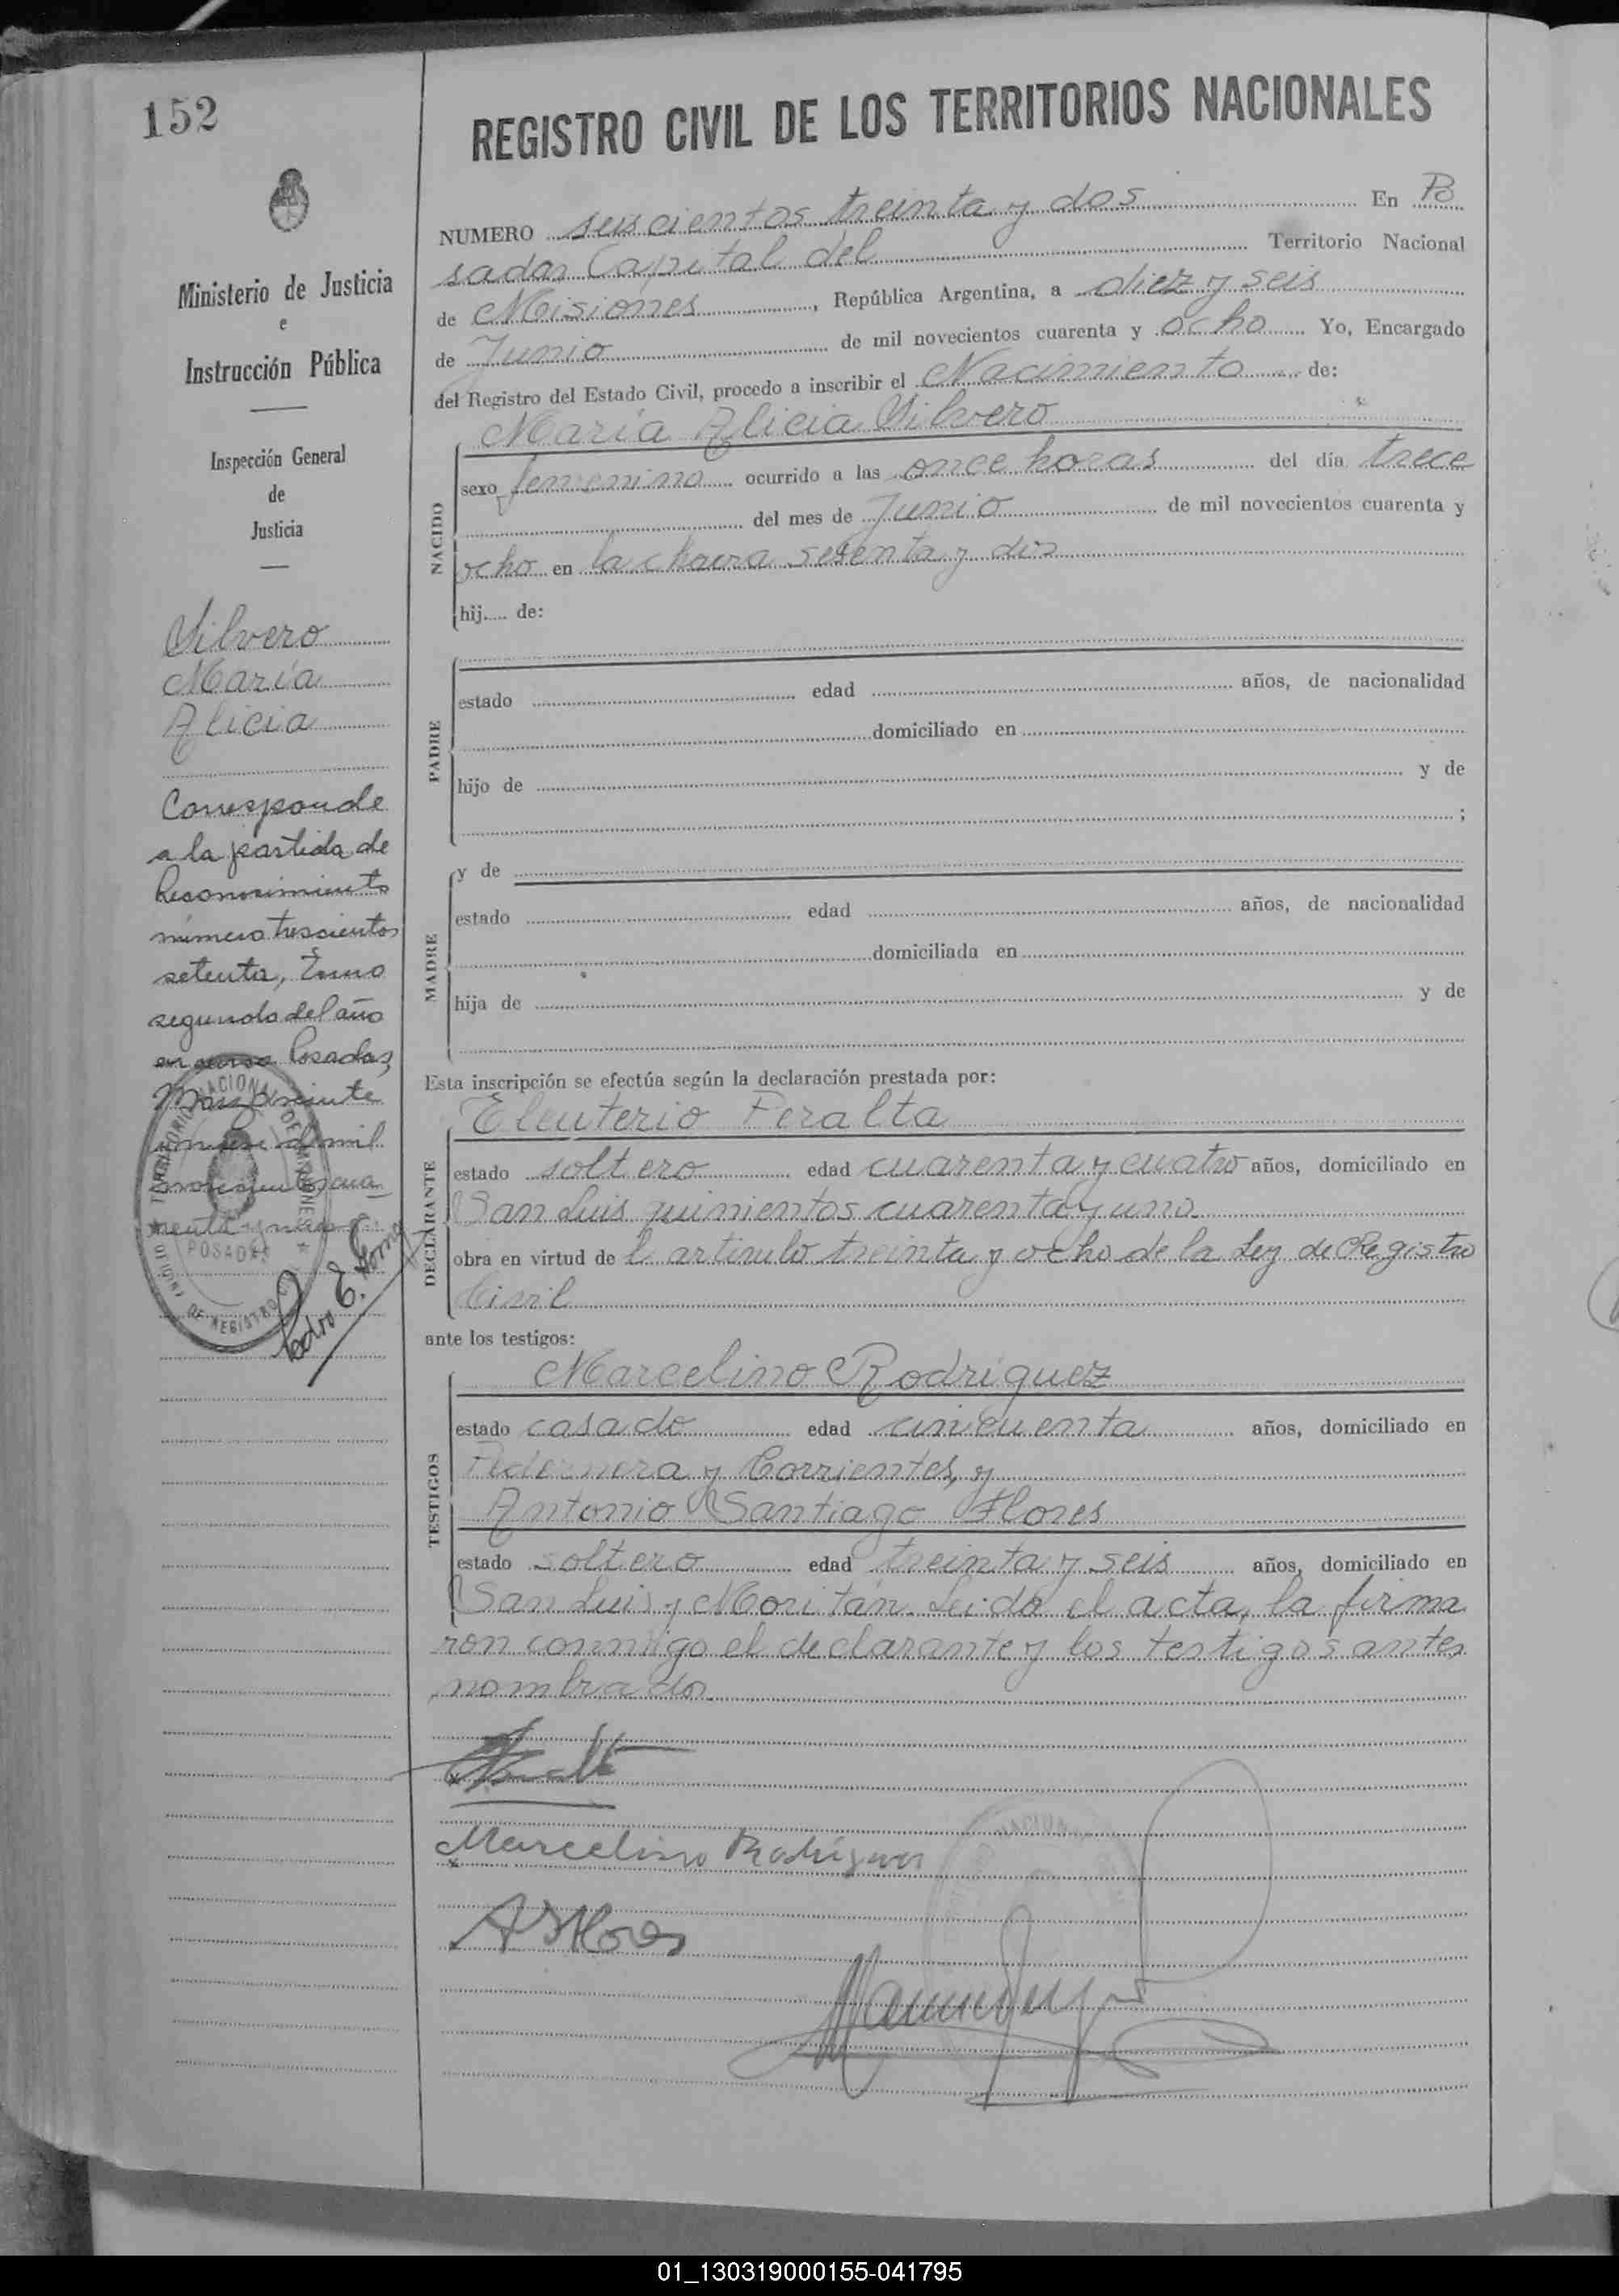 152
REGISTRO CIVIL DE LOS TERRITORIOS NACIONALES
NUMERO seiscientos treinta y dos En Po
sadas Capital del Territorio Nacional
de Misiones, República Argentina, a diez y seis
de Junio de mil novecientos cuarenta y ocho Yo, Encargado
del Registro del Estado Civil, procedo a inscribir el Nacimiento de:
María Alicia Silvero
NACIDO
sexo femenino ocurrido a las once horas del día trece
del mes de Junio de mil novecientos cuarenta y
ocho en la chacra sesenta y dos
hij..... de:
PADRE
estado edad años, de nacionalidad
domiciliado en
hijo de y de
;
MADRE
y de
estado edad años, de nacionalidad
domiciliada en
hija de y de
Esta inscripción se efectúa según la declaración prestada por:
Eleuterio Peralta
DECLARANTE
estado soltero edad cuarenta y cuatro años, domiciliado en
San Luis quinientos cuarenta y uno
obra en virtud de l artículo treinta y ocho de la Ley de Registro
Civil
ante los testigos:
Marcelino Rodríguez
TESTIGOS
estado casado edad cincuenta años, domiciliado en
Pedernera y Corrientes, y
Antonio Santiago Flores
estado soltero edad treinta y seis años, domiciliado en
San Luis y Moritán. Leida el acta, la firma
ron conmigo el declarante y los testigos antes
nombrados
Marcelino Rodríguez
A S Flores
Ministerio de Justicia
e
Instrucción Pública
Inspección General
de
Justicia
Silvero
María
Alicia
Corresponde
a la partida de
Reconocimiento
número trescientos
setenta, Tomo
segundo del año
en curso Posadas,
Marzo veinte
de mil
novecientos cua
renta y nueve
Pedro E.
POSADAS
01_130319000155-041795